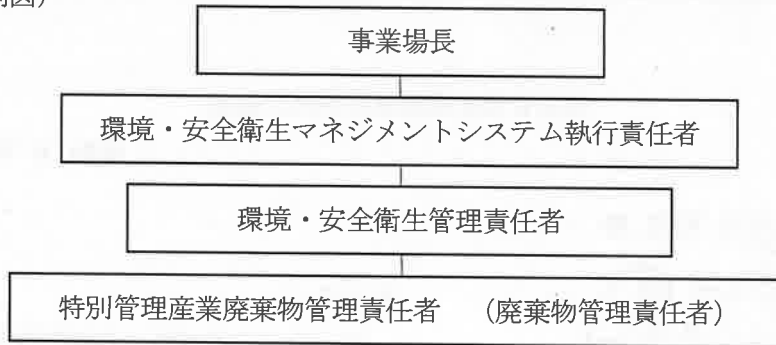 事業場長
環境・安全衛生マネジメントシステム執行責任者
環境・安全衛生管理責任者
特別管理産業廃棄物管理責任者　（廃棄物管理責任者）